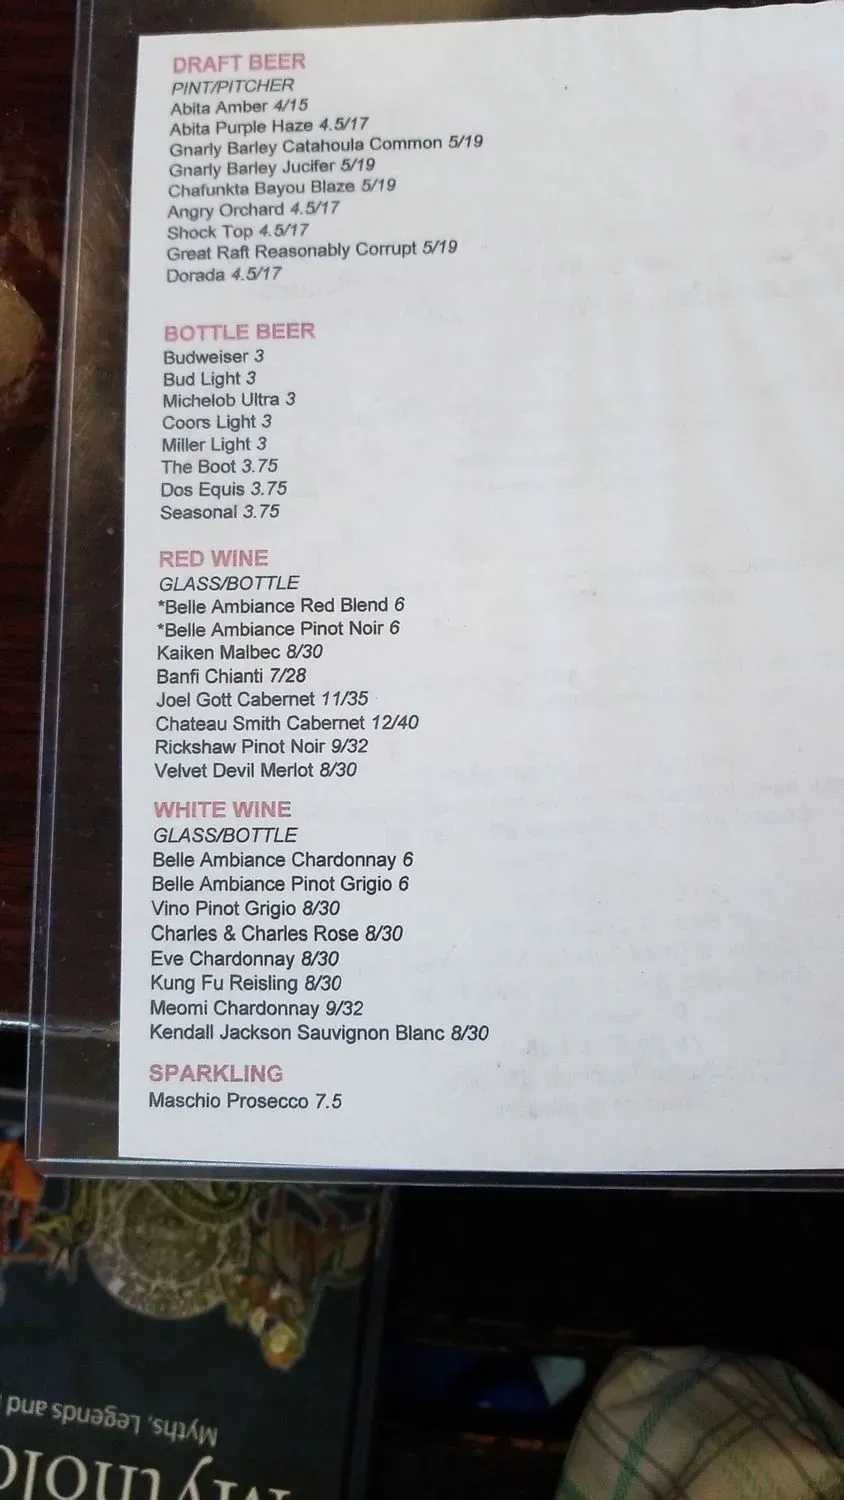 DRAFT BEER
PINT/PITCHER
Abita Amber 4/15
Abita Purple Haze 4.5/17
Gnarly Barley Catahoula Common 5/19
Gnarly Barley Jucifer 5/19
Chafunkta Bayou Blaze 5/19
Angry Orchard 4.5/17
Shock Top 4.5/17
Great Raft Reasonably Corrupt 5/19
Dorada 4.5/17
BOTTLE BEER
Budweiser 3
Bud Light 3
Michelob Ultra 3
Coors Light 3
Miller Light 3
The Boot 3.75
Dos Equis 3.75
Seasonal 3.75
RED WINE
GLASS/BOTTLE
*Belle Ambiance Red Blend 6
*Belle Ambiance Pinot Noir 6
Kaiken Malbec 8/30
Banfi Chianti 7/28
Joel Gott Cabernet 11/35
Chateau Smith Cabernet 12/40
Rickshaw Pinot Noir 9/32
Velvet Devil Merlot 8/30
WHITE WINE
GLASS/BOTTLE
Belle Ambiance Chardonnay 6
Belle Ambiance Pinot Grigio 6
Vino Pinot Grigio 8/30
Charles & Charles Rose 8/30
Eve Chardonnay 8/30
Kung Fu Reisling 8/30
Meomi Chardonnay 9/32
Kendall Jackson Sauvignon Blanc 8/30
SPARKLING
Maschio Prosecco 7.5
Myths, Legends and